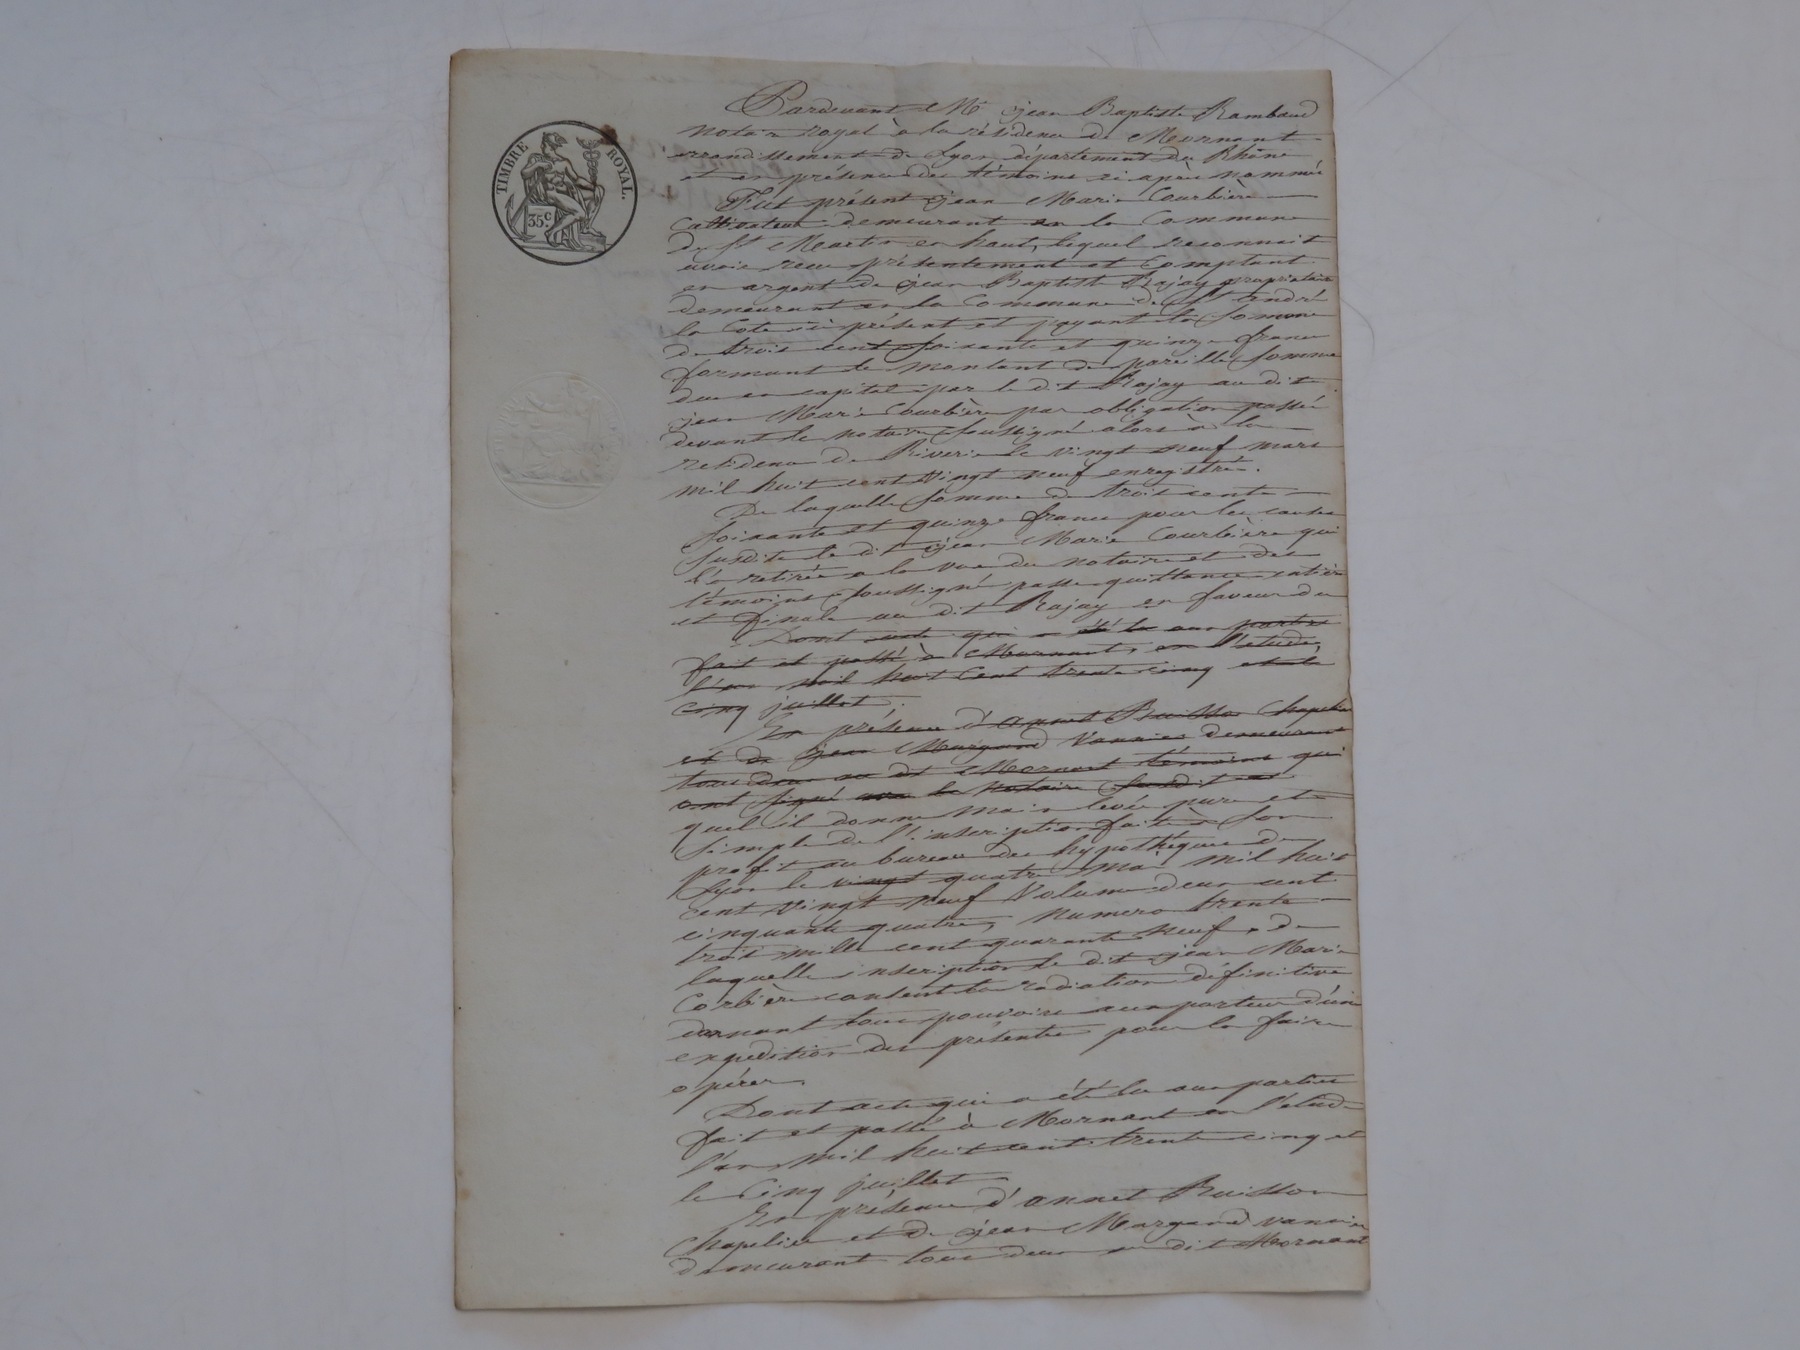 TIMBRE ROYAL.
35 c.
Pardevant Me jean Baptiste Rambaud
Notair royal à la résidence de Mornant
arrondissement de Lyon, département du Rhône
et en présence des témoins ci après nommés
Fut présent jean Marie Courbière
Cultivateur demeurant en la Commune
de St Martin en haut, lequel reconnait
avoir reçu présentement et Comptant
en argent de jean Baptiste Rajay propriétaire
demeurant en la Commune de St andré
la Cote ici présent et payant la Somme
de trois cent Soixante et quinze francs
formant le montant de pareille Somme
due en capital par le dit Rajay au dit
jean Marie Courbière par obligation passée
devant le notaire Soussigné alors à la
residence de Riverie le vingt neuf mars
mil huit cent Vingt neuf enregistrée.
De laquelle Somme de trois cents
Soixante et quinze francs pour les causes
Susdite le dit jean Marie Courbière qui
l'a retirée a la vue du notaire et des
témoins Soussigné passe quittance entière
et finale au dit Rajay en faveur du
Dont acte qui a été lu aux parties
fait et passé à Mornant, en l'etude,
l'an mil huit Cent trente cinq et le
cinq juillet.
En présence d'annet Buisson Chapelier
et de jean Margand Vannier demeurant
tous deux au dit Mornant témoins qui
ont signé avec le Notaire Susdit et
quel il donne main levée pure et
Simple de l'inscription faite à Son
profit au bureau des hypothèques de
Lyon le vingt quatre mai mil huit
cent Vingt Neuf Volume deux cent
cinquante quatre, numero trente
trois mille cent quarante neuf, de
laquelle inscription le dit jean Marie
Corbière consent la radiation définitive
donnant tous pouvoirs aux porteur d'un
expedition des présentes pour la faire
opérer.
Dont acte qui a été lu aux parties
fait et passé à Mornant en l'etude
l'an Mil huit cent trente cinq et
le Cinq juillet
En présence d'annet Buisson
Chapelier et de jean Margand vannier
demeurant tous deux au dit Mornant